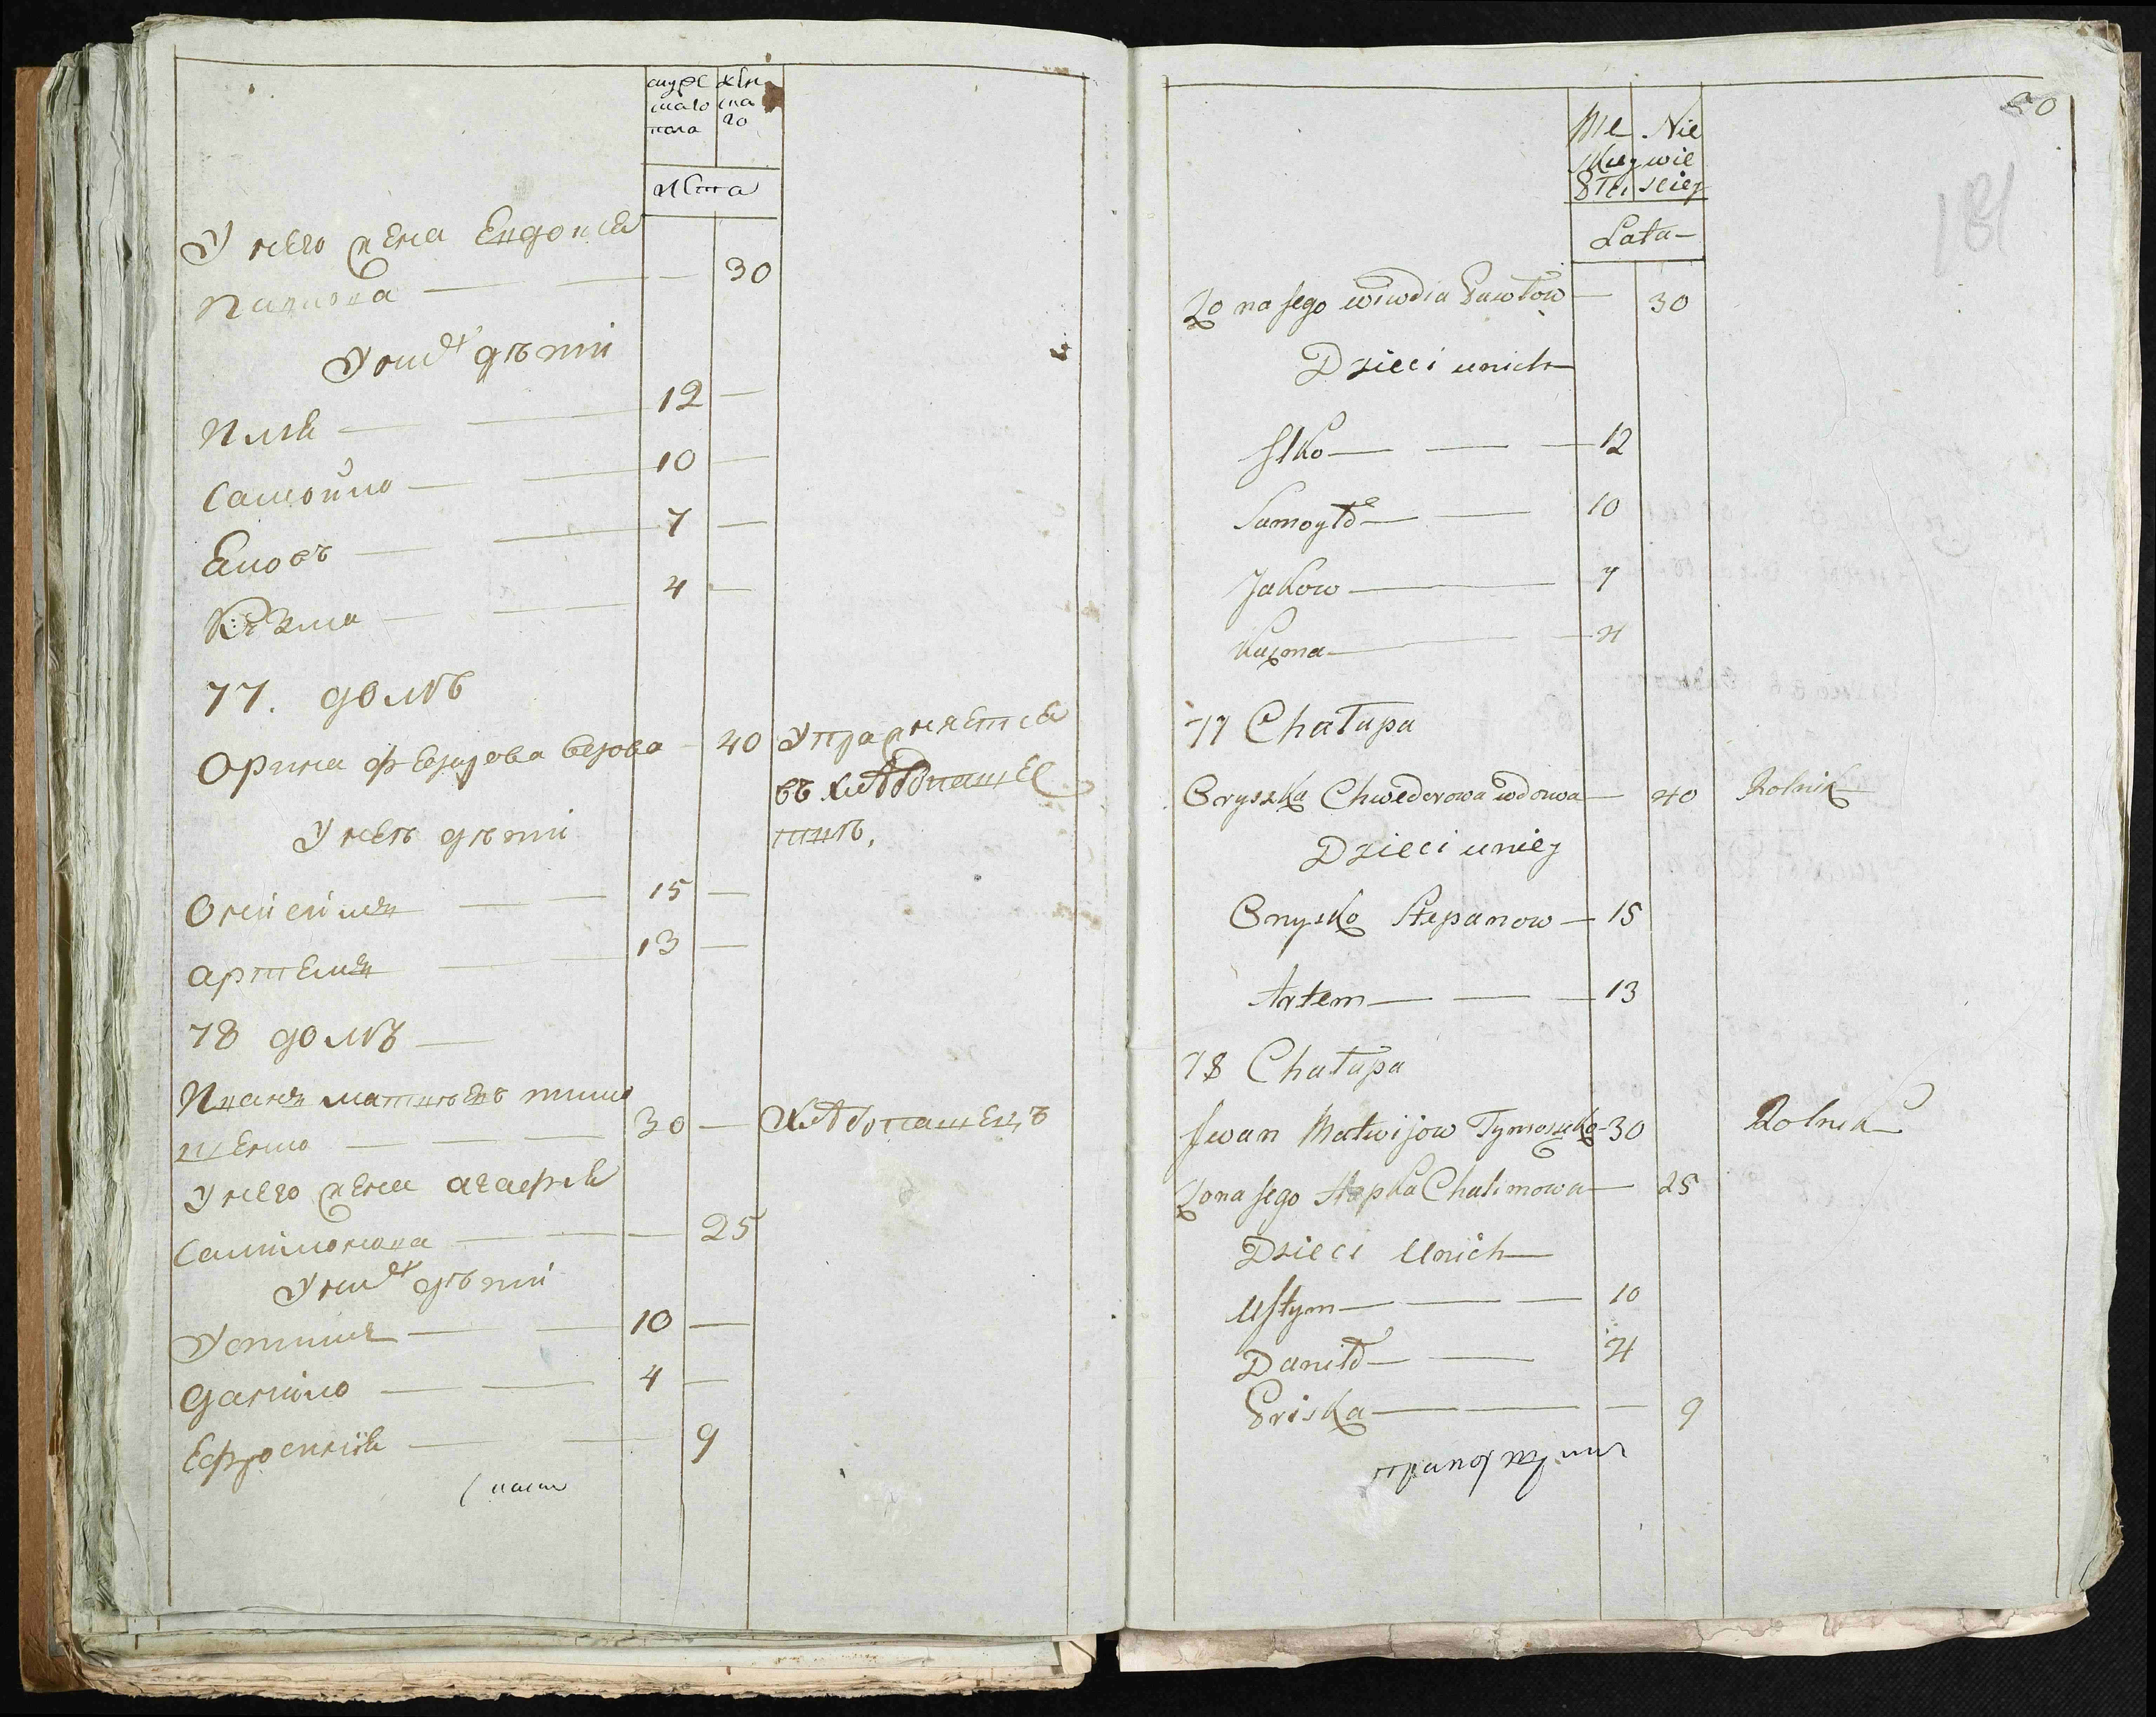 мужес
каго
пола
жен
ска
го
лета
У него жена Евдокiя
Павлова — — 30
У них дѣти
Илiя — — 12 —
Самойло — — 10 —
Яковъ — — 7 —
Козма — — 4 —
77. домъ
Орина Федорова вдова — 40 Упражняется
въ хлѣбопаше
ствѣ.
У неѣ дѣти
Онисимъ — — 15 —
артемъ — — 13 —
78 домъ —
Иванъ матвѣевъ тимо
шенко — — — 30 — Хлѣбопашецъ
У него жена агафiя
— — — 25
У них дѣти
Устимъ — — 10 —
данiло — — 4 —
Ефросинiя — — 9
Me
skiey
Płci
Nie
wie
sciey
Lata —
20
181
Zona jego Wiwdia Pawłow — 30
Dzieci unich
Ilko — — — 12
Samoyło — — 10
Jakow — 7
Kuzma — — 4
77 Chałupa
Oryszka Chwedorowa wdowa — 40 Rolnik
Dzieci uniey
Onysko Stepanow — 15
Artem — — — 13
78 Chałupa
Iwan Matwijow Tymoszko - 30 Rolnik
Zona jego Hapka Chalimowa — 25
Dzieci Unich
Ustym — — — 10
Daniło — — 4
Priska — — — 9